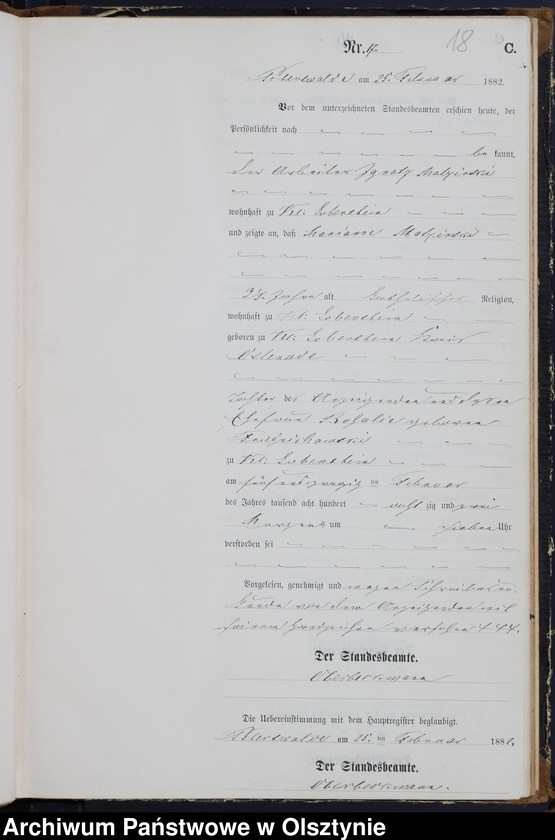 18
Nr. 17. C.
Peterswalde am 25. Februar 1882.
Vor dem unterzeichneten Standesbeamten erschien heute, der
Persönlichkeit nach
be kannt,
der Arbeiter Ignatz
wohnhaft zu Kl: Lobenstein
und zeigte an, daß Marianne
Jahre alt katholischer Religion,
wohnhaft zu Kl: Lobenstein
geboren zu Kl: Lobenstein Kreis
Osterode
Tochter des Anzeigenden und dessen
Ehefrau Rosalie geborene
zu Kl: Lobenstein
am fünfundzwanzig ten Februar
des Jahres tausend acht hundert acht zig und zwei
Morgens um sieben Uhr
verstorben sei
Vorgelesen, genehmigt und wegen Schreibensun-
kunde von dem Anzeigenden mit
seinem Handzeichen versehen +++.
Der Standesbeamte.
Die Uebereinstimmung mit dem Hauptregister beglaubigt.
Peterswalde am 25. ten Februar 1882.
Der Standesbeamte.
Archiwum Państwowe w Olsztynie